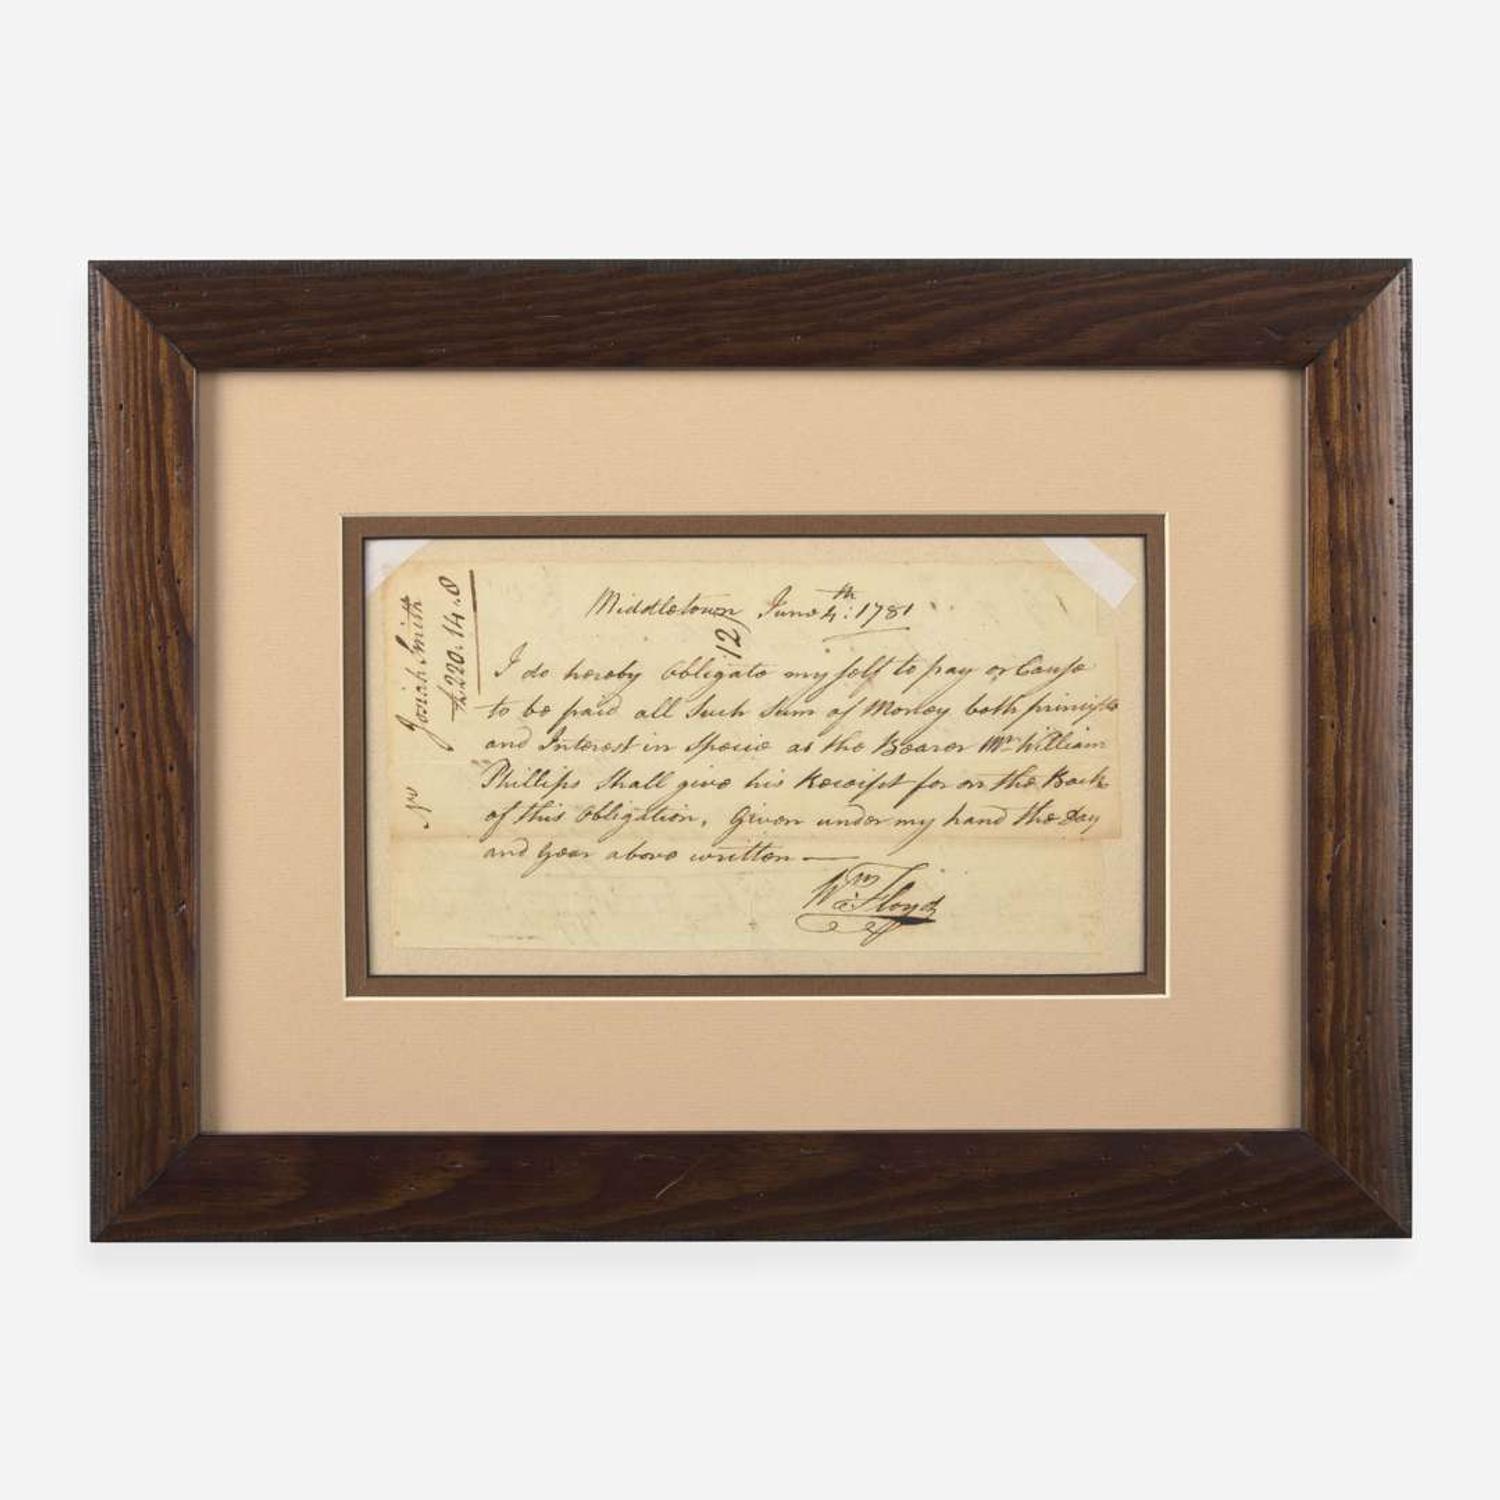 Middletown June 4th: 1781
I do hereby Obligate my self to pay or Cause
to be paid all Such Sum of Money both principle
and Interest in Specie as the Bearer Mr William
Phillips Shall give his Receipt for on the Back
of this Obligation, Given under my hand the Day
and year above written —
Wm Floyd
12
No Josiah Smith
£220.14.8